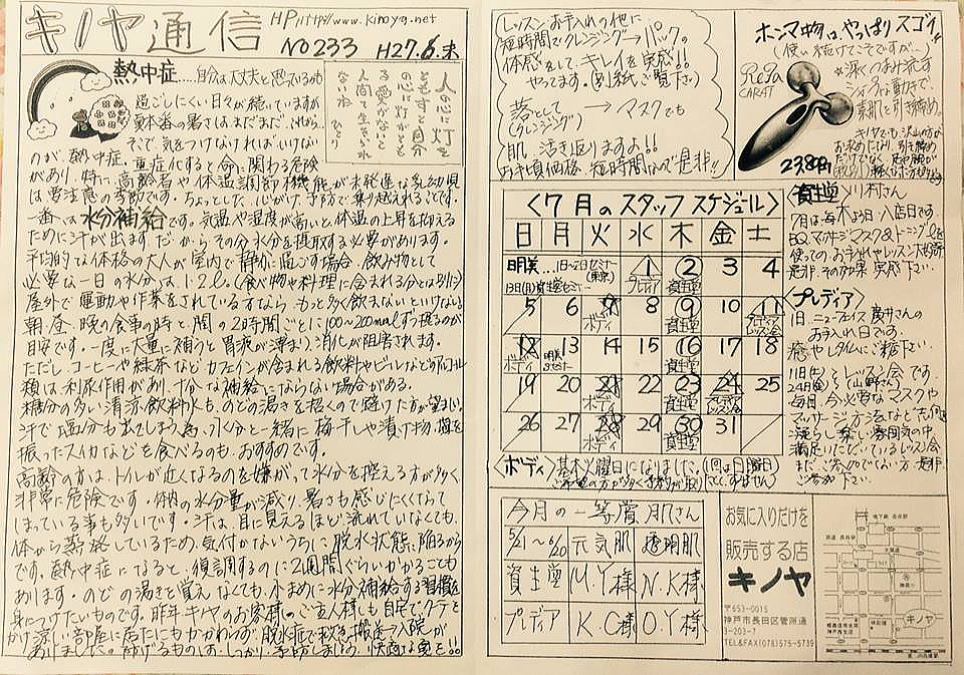 キノヤ通信
HP:http://www.kinoya.net
NO233 H27.6.末
熱中症……自分は大丈夫と思っていませんか
過ごしにくい日々が続いていますが
夏本番の暑さはまだまだこれから。
そこで気をつけなければいけない
のが、熱中症。重症化すると命に関わる危険
があり、特に高齢者や体温調節機能が未発達な乳幼児
は要注意の季節です。ちょっとした心がけ、予防で乗り越えれることです。
一番は水分補給です。気温や湿度が高いと体温の上昇を抑える
ために汗が出ます。だからその分水分を摂取する必要があります。
平均的な体格の大人が室内で静かに過ごす場合、飲み物として
必要な一日の水分は、1.2ℓ。(食べ物や料理に含まれる分とは別に)
屋外で運動や作業をされている方なら、もっと多く飲まないといけない。
朝・昼・晩の食事の時と、間の2時間ごとに100〜200mlずつ摂るのが
目安です。一度に大量に補うと胃液が薄まり、消化が阻害されます。
ただし、コーヒーや緑茶などカフェインが含まれる飲料やビールなどのアルコール
類は利尿作用があり、十分な補給にならない場合がある。
糖分の多い清涼飲料水も、のどの渇きを招くので避けた方が望ましい。
汗で塩分も出てしまう為、水分と一緒に梅干しや漬け物、塩を
振ったスイカなどを食べるのも、おすすめです。
高齢の方は、トイレが近くなるのを嫌がって水分を控える方が多く、
非常に危険です。体内の水分量が減り、暑さも感じにくくなって
しまっている事も多いです。汗は、目に見えるほど流れていなくても、
体から蒸発しているため、気付かないうちに脱水状態に陥るから
です。熱中症になると、復調するのに2週間ぐらいかかることも
あります。のどの渇きを覚えなくても、小まめに水分補給する習慣を
身につけたいものです。昨年キノヤのお客様のご主人様も自宅でクーラーを
かけ涼しい部屋に居たにもかかわらず、脱水症で救急搬送→入院が
ありました。防げるものは、しっかり予防しましょう。快適な夏を!!
人の心に灯を
ともすと自分
の心にも灯がともる
愛がなくて
人間て生きられ
ないね
レッスンお手入れの他に
短時間でクレンジング→パックの
体感をして、キレイを実感!!
やってます。(別紙ご覧下さい)
落として → マスクでも
(クレンジング)
肌、活き返りますよ!!
お手頃価格、短時間なので是非!!
ホンマ物は、やっぱりスゴイ!!
(使い続けてこそですが…)
ReFa
CARAT
☆深くつまみ流す
動きで、
素肌を引き締め。
23,800円
〈7月のスタッフスケジュール〉
日 月 火 水 木 金 土
明美… 1日〜2日セミナー(東京)
13日(月)資生堂セミナー
1 プレディア 2 資生堂 3 4
5 6 7 ボディ 8 9 資生堂 10 11 プレディアレッスン会
12 ボディ 13 14 15 16 資生堂 17 18
19 20 21 ボディ 22 23 資生堂 24 レッスン会 25
26 27 28 ボディ 29 30 資生堂 31
〈ボディ〉 基本火曜日になりました。(1回は日曜日)
〈資生堂〉川村さん
7月は、毎木よう日入店日です。
BQ.マッサージマスク&トーニングを
使ってのお手入れやレッスン
是非、その効果 実感下さい。
〈プレディア〉
1日、ニューフェイス廣井さんの
お手入れ日です。
癒やしタイムにご来下さい。
11日(土)とレッスン会です。
24日(金)
毎日、今必要なマスクや
マッサージ方法などを
楽しい雰囲気の中、
満足いただいているレッスン会
まだ、ご参加でない方、是非
ご参加下さい
今月の一等賞 肌さん
5/21〜6/20 元気肌 透明肌
資生堂 M.Y様 N.K様
プレディア K.C様 O.Y様
お気に入りだけを
販売する店
キノヤ
〒653-0015
神戸市長田区菅原通
3-203-7
TEL&FAX(078)575-5739
キノヤ